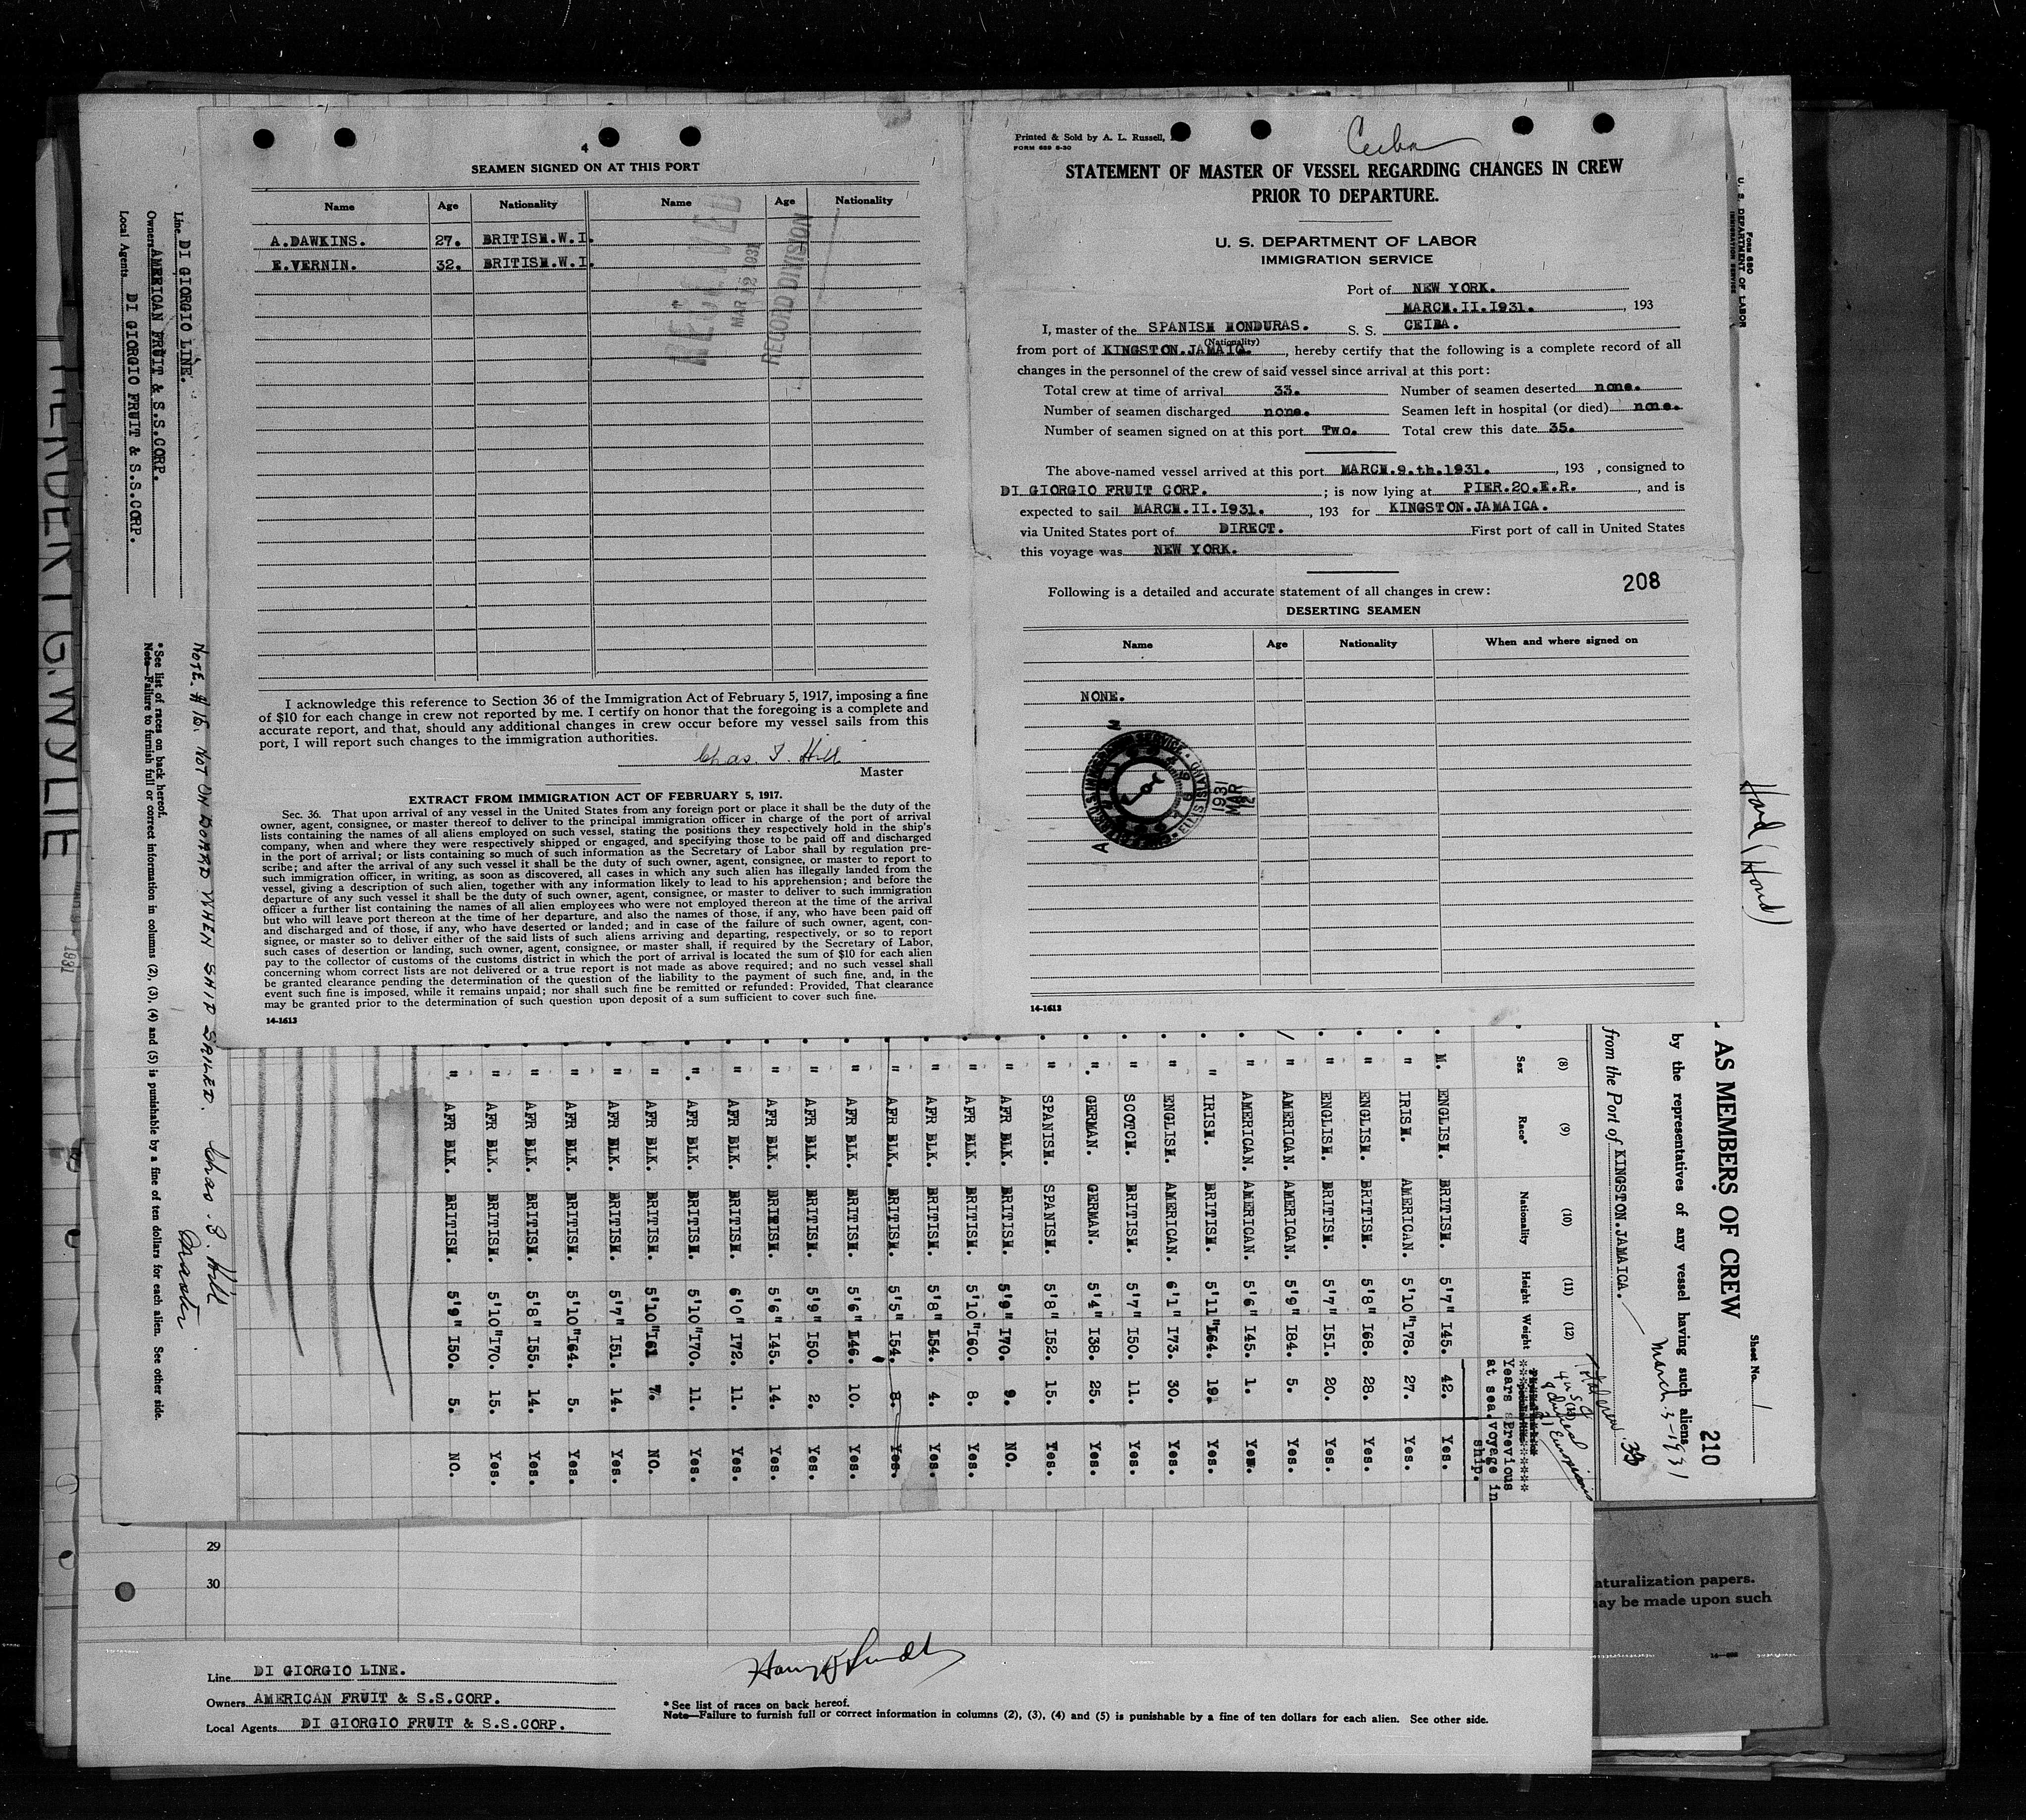 4
SEAMEN SIGNED ON AT THIS PORT
Name Age Nationality Name Age Nationality
A.DAWKINS. 27. BRITISH.W.I.
E.VERNIN. 32. BRITISH.W.I.
RECEIVED
MAR 12 1931
RECORD DIVISION
I acknowledge this reference to Section 36 of the Immigration Act of February 5, 1917, imposing a fine
of $10 for each change in crew not reported by me. I certify on honor that the foregoing is a complete and
accurate report, and that, should any additional changes in crew occur before my vessel sails from this
port, I will report such changes to the immigration authorities.
Chas. T. Hill
Master
EXTRACT FROM IMMIGRATION ACT OF FEBRUARY 5, 1917.
Sec. 36. That upon arrival of any vessel in the United States from any foreign port or place it shall be the duty of the
owner, agent, consignee, or master thereof to deliver to the principal immigration officer in charge of the port of arrival
lists containing the names of all aliens employed on such vessel, stating the positions they respectively hold in the ship's
company, when and where they were respectively shipped or engaged, and specifying those to be paid off and discharged
in the port of arrival; or lists containing so much of such information as the Secretary of Labor shall by regulation pre-
scribe; and after the arrival of any such vessel it shall be the duty of such owner, agent, consignee, or master to report to
such immigration officer, in writing, as soon as discovered, all cases in which any such alien has illegally landed from the
vessel, giving a description of such alien, together with any information likely to lead to his apprehension; and before the
departure of any such vessel it shall be the duty of such owner, agent, consignee, or master to deliver to such immigration
officer a further list containing the names of all alien employees who were not employed thereon at the time of the arrival
but who will leave port thereon at the time of her departure, and also the names of those, if any, who have been paid off
and discharged and of those, if any, who have deserted or landed; and in case of the failure of such owner, agent, con-
signee, or master so to deliver either of the said lists of such aliens arriving and departing, respectively, or so to report
such cases of desertion or landing, such owner, agent, consignee, or master shall, if required by the Secretary of Labor,
pay to the collector of customs of the customs district in which the port of arrival is located the sum of $10 for each alien
concerning whom correct lists are not delivered or a true report is not made as above required; and no such vessel shall
be granted clearance pending the determination of the question of the liability to the payment of such fine, and, in the
event such fine is imposed, while it remains unpaid; nor shall such fine be remitted or refunded: Provided, That clearance
may be granted prior to the determination of such question upon deposit of a sum sufficient to cover such fine.
14-1613
Printed & Sold by A. L. Russell,
FORM 689 8-30
Ceiba
STATEMENT OF MASTER OF VESSEL REGARDING CHANGES IN CREW
PRIOR TO DEPARTURE.
U. S. DEPARTMENT OF LABOR
IMMIGRATION SERVICE
Port of NEW YORK.
MARCH.II.I931. , 193
I, master of the SPANISH HONDURAS. S. S. CEIBA.
(Nationality)
from port of KINGSTON.JAMAIC. , hereby certify that the following is a complete record of all
changes in the personnel of the crew of said vessel since arrival at this port:
Total crew at time of arrival 33. Number of seamen deserted none.
Number of seamen discharged none. Seamen left in hospital (or died) none.
Number of seamen signed on at this port Two. Total crew this date 35.
The above-named vessel arrived at this port MARCH.9.th.1931. , 193 , consigned to
DI GIORGIO FRUIT CORP. ; is now lying at PIER.20.E.R. , and is
expected to sail MARCH.II.I931. , 193 for KINGSTON.JAMAICA.
via United States port of DIRECT. First port of call in United States
this voyage was NEW YORK.
208
Following is a detailed and accurate statement of all changes in crew:
DESERTING SEAMEN
Name Age Nationality When and where signed on
NONE.
1931 MAR 12
14-1613
Form 680
U. S. DEPARTMENT OF LABOR
IMMIGRATION SERVICE
Hond (Hond)
Sheet No. 1
210
AS MEMBERS OF CREW
by the representatives of any vessel having such aliens
March 3-1931
from the Port of KINGSTON.JAMAICA.
33
(8) (9) (10) (11) (12)
Sex Race* Nationality Height Weight
Years at sea. Previous voyage in ship.
M. ENGLISH. BRITISH. 5'7" I45. 42. Yes.
" IRISH. AMERICAN. 5'10" I78. 27. Yes.
" ENGLISH. BRITISH. 5'8" I68. 28. Yes.
" ENGLISH. BRITISH. 5'7" I5I. 20. Yes.
" AMERICAN. AMERICAN. 5'9" I84. 5. Yes.
" AMERICAN. AMERICAN. 5'6" I45. 1. Yes.
" IRISH. BRITISH. 5'11" I64. 19. Yes.
" ENGLISH. AMERICAN. 6'1" I73. 30. Yes.
" SCOTCH. BRITISH. 5'7" I50. 11. Yes.
" GERMAN. GERMAN. 5'4" I38. 25. Yes.
" SPANISH. SPANISH. 5'8" I52. 15. Yes.
" AFR BLK. BRITISH. 5'9" I70. 9. NO.
" AFR BLK. BRITISH. 5'10" I60. 8. Yes.
" AFR BLK. BRITISH. 5'8" I54. 4. Yes.
" AFR BLK. BRITISH. 5'5" I54. 8. Yes.
" AFR BLK. BRITISH. 5'6" I46. 10. Yes.
" AFR BLK. BRITISH. 5'9" I50. 2. Yes.
" AFR BLK. BRITISH. 5'6" I45. 14. Yes.
" AFR BLK. BRITISH. 6'0" I72. 11. Yes.
" AFR BLK. BRITISH. 5'10" I70. 11. Yes.
" AFR BLK. BRITISH. 5'10" I61 7. NO.
" AFR BLK. BRITISH. 5'7" I51. 14. Yes.
" AFR BLK. BRITISH. 5'10" I64. 5. Yes.
" AFR BLK. BRITISH. 5'8" I55. 14. Yes.
" AFR BLK. BRITISH. 5'10" I70. 15. Yes.
" AFR BLK. BRITISH. 5'9" I50. 5. NO.
NOTE. #16. NOT ON BOARD WHEN SHIP SAILED. Chas. T. Hill
Master
Line DI GIORGIO LINE.
Owners AMERICAN FRUIT & S.S.CORP.
Local Agents DI GIORGIO FRUIT & S.S.CORP.
* See list of races on back hereof.
Note—Failure to furnish full or correct information in columns (2), (3), (4) and (5) is punishable by a fine of ten dollars for each alien. See other side.
G. WYLIE
1931
29
30
Line DI GIORGIO LINE.
Owners AMERICAN FRUIT & S.S.CORP.
Local Agents DI GIORGIO FRUIT & S.S.CORP.
* See list of races on back hereof.
Note—Failure to furnish full or correct information in columns (2), (3), (4) and (5) is punishable by a fine of ten dollars for each alien. See other side.
aturalization papers.
ay be made upon such